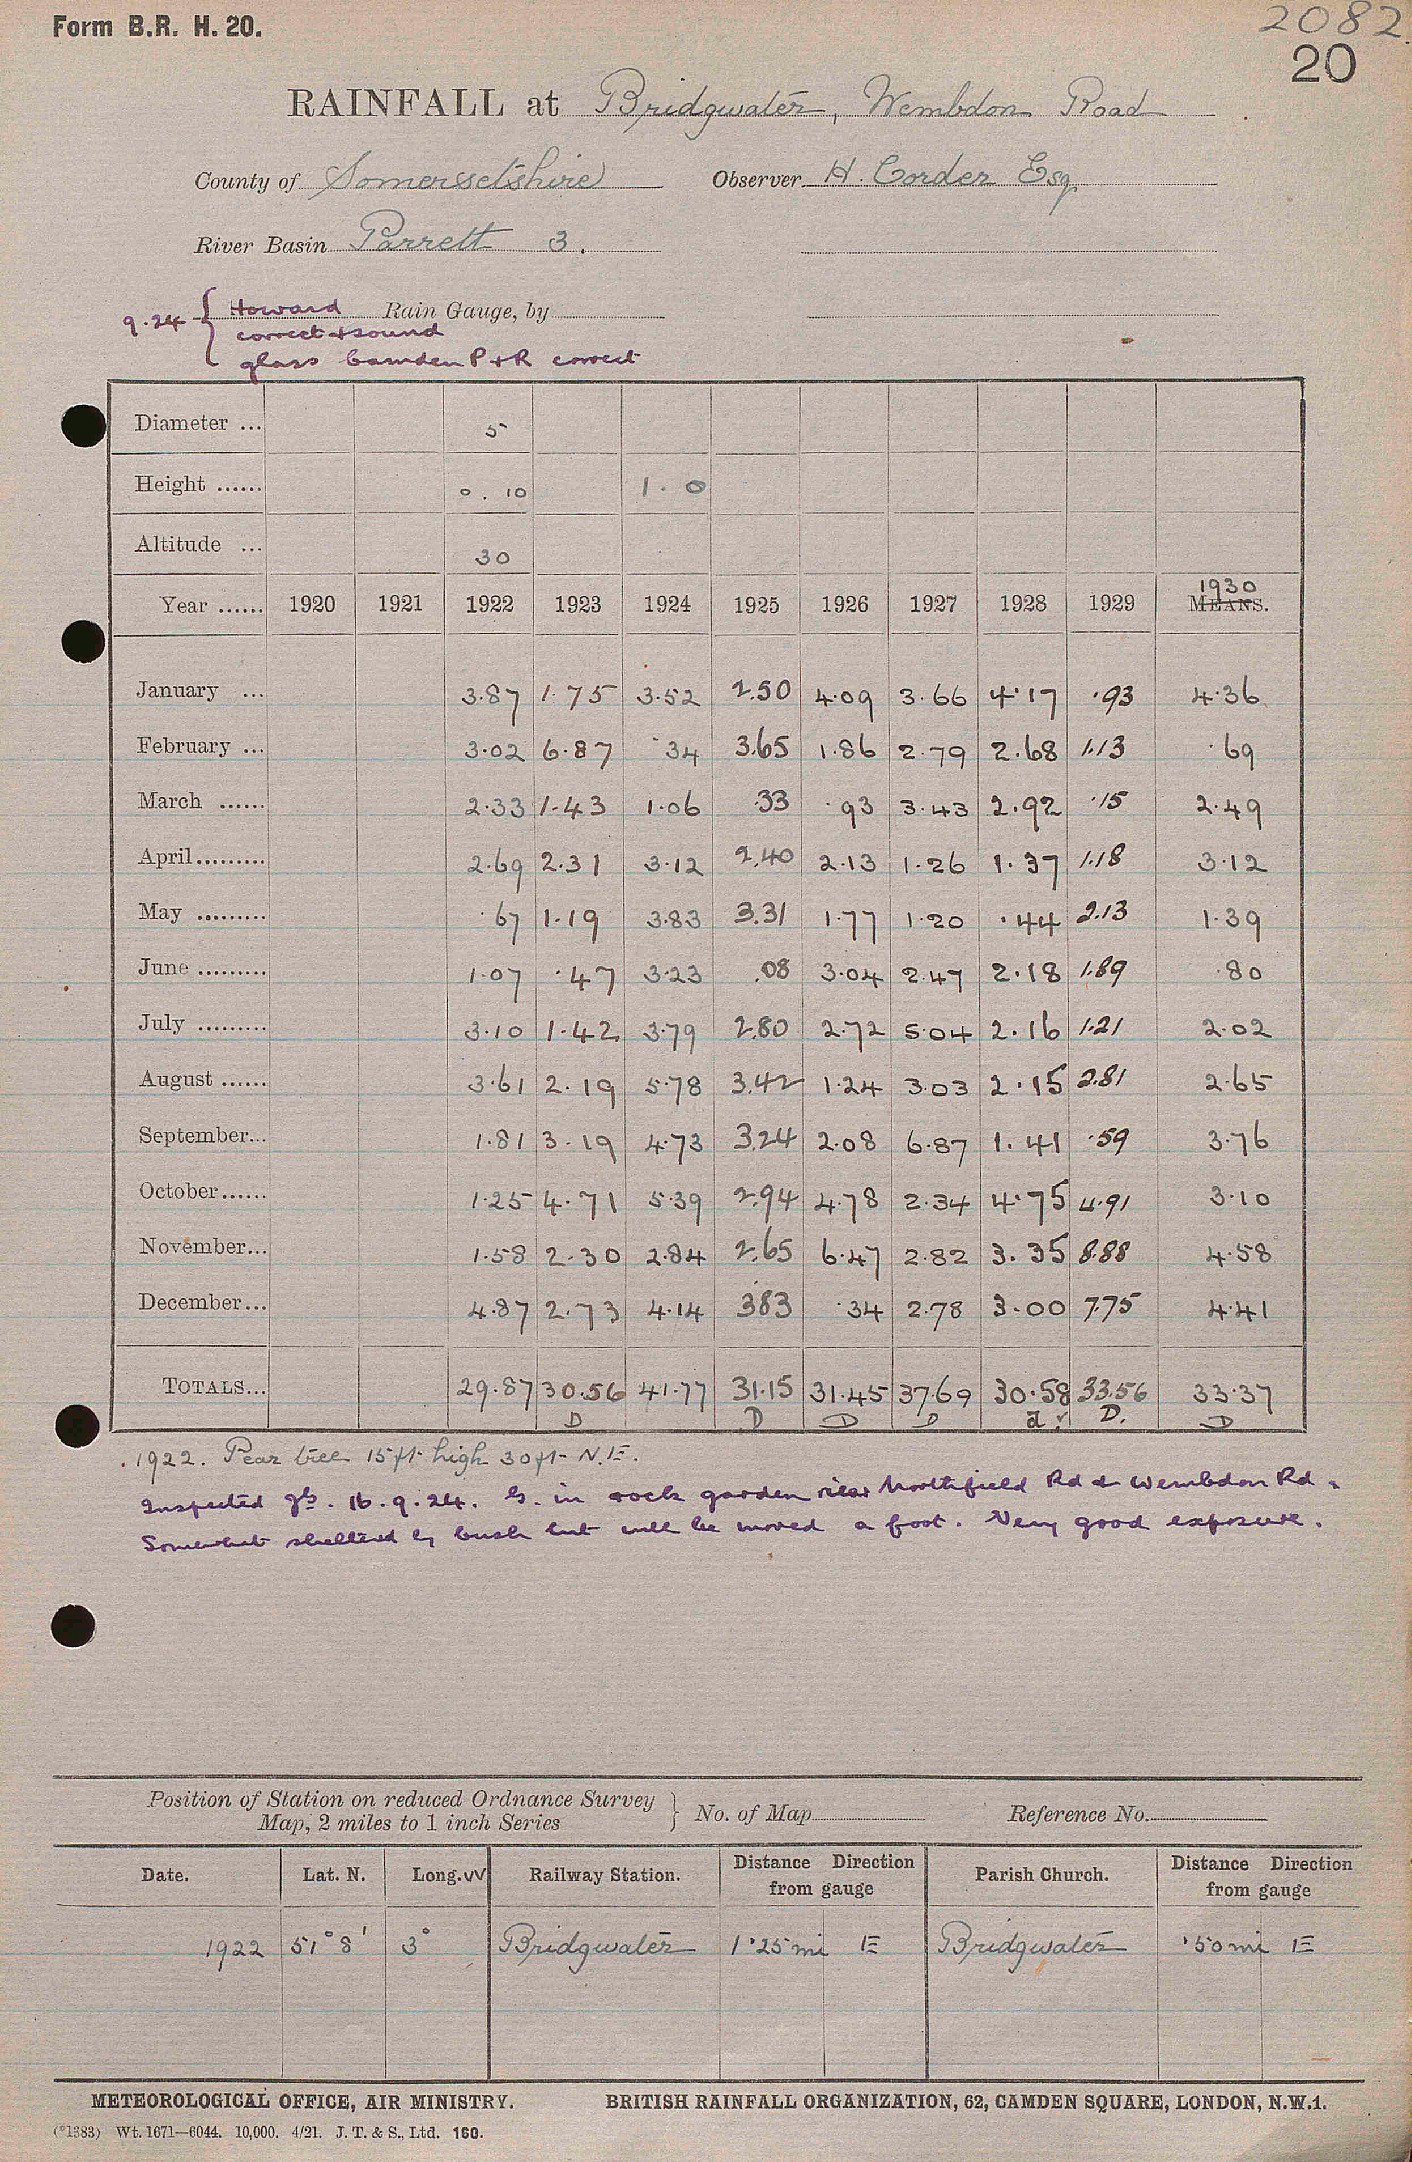 Form B.R. H. 20.
2082.
20
RAINFALL at Bridgwater, Wembdon Road
County of Somersetshire Observer H. Corder Esq
River Basin Parrett 3.
9.24 { Howard Rain Gauge, by
correct + sound
glass Camden P + R correct
Diameter ... 5
Height ...... 0. 10 1. 0
Altitude ... 30
Year ...... 1920 1921 1922 1923 1924 1925 1926 1927 1928 1929 1930 MEANS.
January ... 3.87 1.75 3.52 2.50 4.09 3.66 4.17 .93 4.36
February ... 3.02 6.87 .34 3.65 1.86 2.79 2.68 1.13 .69
March ...... 2.33 1.43 1.06 .33 .93 3.43 2.92 .15 2.49
April ......... 2.69 2.31 3.12 2.40 2.13 1.26 1.37 1.18 3.12
May ......... .67 1.19 3.83 3.31 1.77 1.20 .44 2.13 1.39
June ......... 1.07 .47 3.23 .08 3.04 2.47 2.18 1.89 .80
July ......... 3.10 1.42 3.79 2.80 2.72 5.04 2.16 1.21 2.02
August ...... 3.61 2.19 5.78 3.42 1.24 3.03 2.15 2.81 2.65
September... 1.81 3.19 4.73 3.24 2.08 6.87 1.41 .59 3.76
October...... 1.25 4.71 5.39 2.94 4.78 2.34 4.75 4.91 3.10
November... 1.58 2.30 2.84 2.65 6.47 2.82 3.35 8.88 4.58
December... 4.87 2.73 4.14 383 .34 2.78 3.00 7.75 4.41
TOTALS... 29.87 30.56 41.77 31.15 31.45 37.69 30.58 33.56 33.37
D D D D d. ✓ D. D
1922. Pear tree 15 ft high 30 ft N.E.
Inspected 16.9.24. G. in rock garden near Northfield Rd & Wembdon Rd.
Somewhat sheltered by bush but will be moved a foot. Very good exposure.
Position of Station on reduced Ordnance Survey Map, 2 miles to 1 inch Series } No. of Map Reference No.
Date. Lat. N. Long. W Railway Station. Distance Direction from gauge Parish Church. Distance Direction from gauge
1922 51° 8' 3° Bridgwater 1.25 mi E Bridgwater .50 mi E
METEOROLOGICAL OFFICE, AIR MINISTRY. BRITISH RAINFALL ORGANIZATION, 62, CAMDEN SQUARE, LONDON, N.W.1.
(*1383) Wt. 1671—6044. 10,000. 4/21. J. T. & S., Ltd. 160.